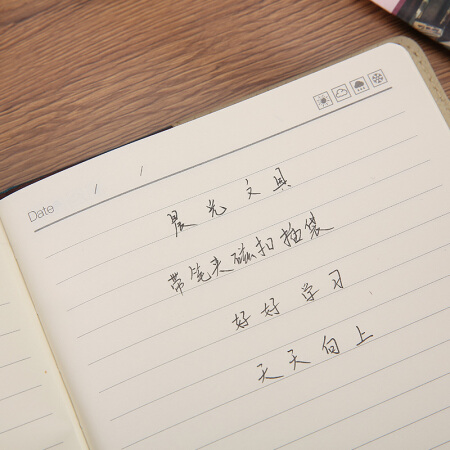 Date / /
晨光文具
带笔夹磁扣插袋
好好学习
天天向上